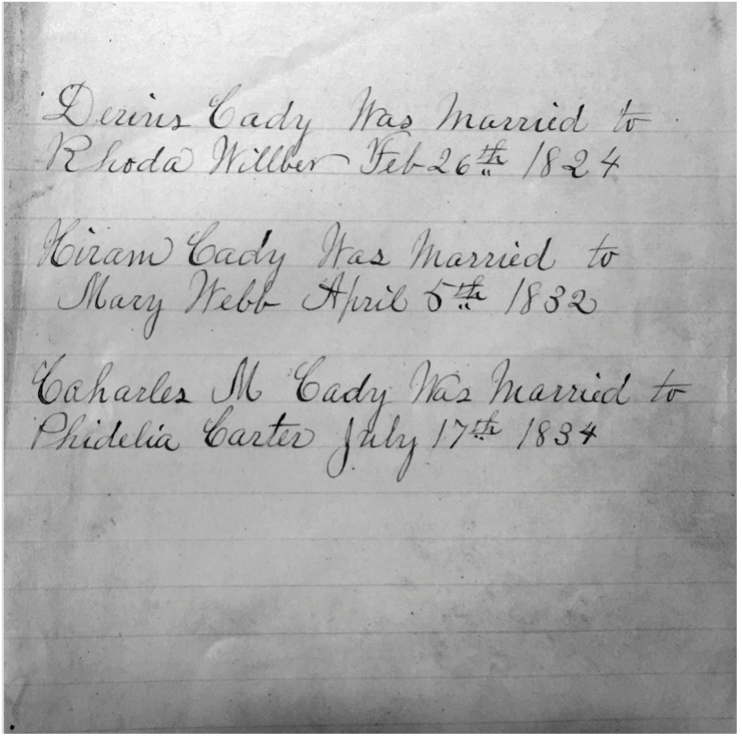 Derius Cady Was Married to
Rhoda Willber Feb 26th 1824
Hiram Cady Was Married to
Mary Webb April 5th 1832
Caharles M Cady Was Married to
Phidelia Carter July 17th 1834